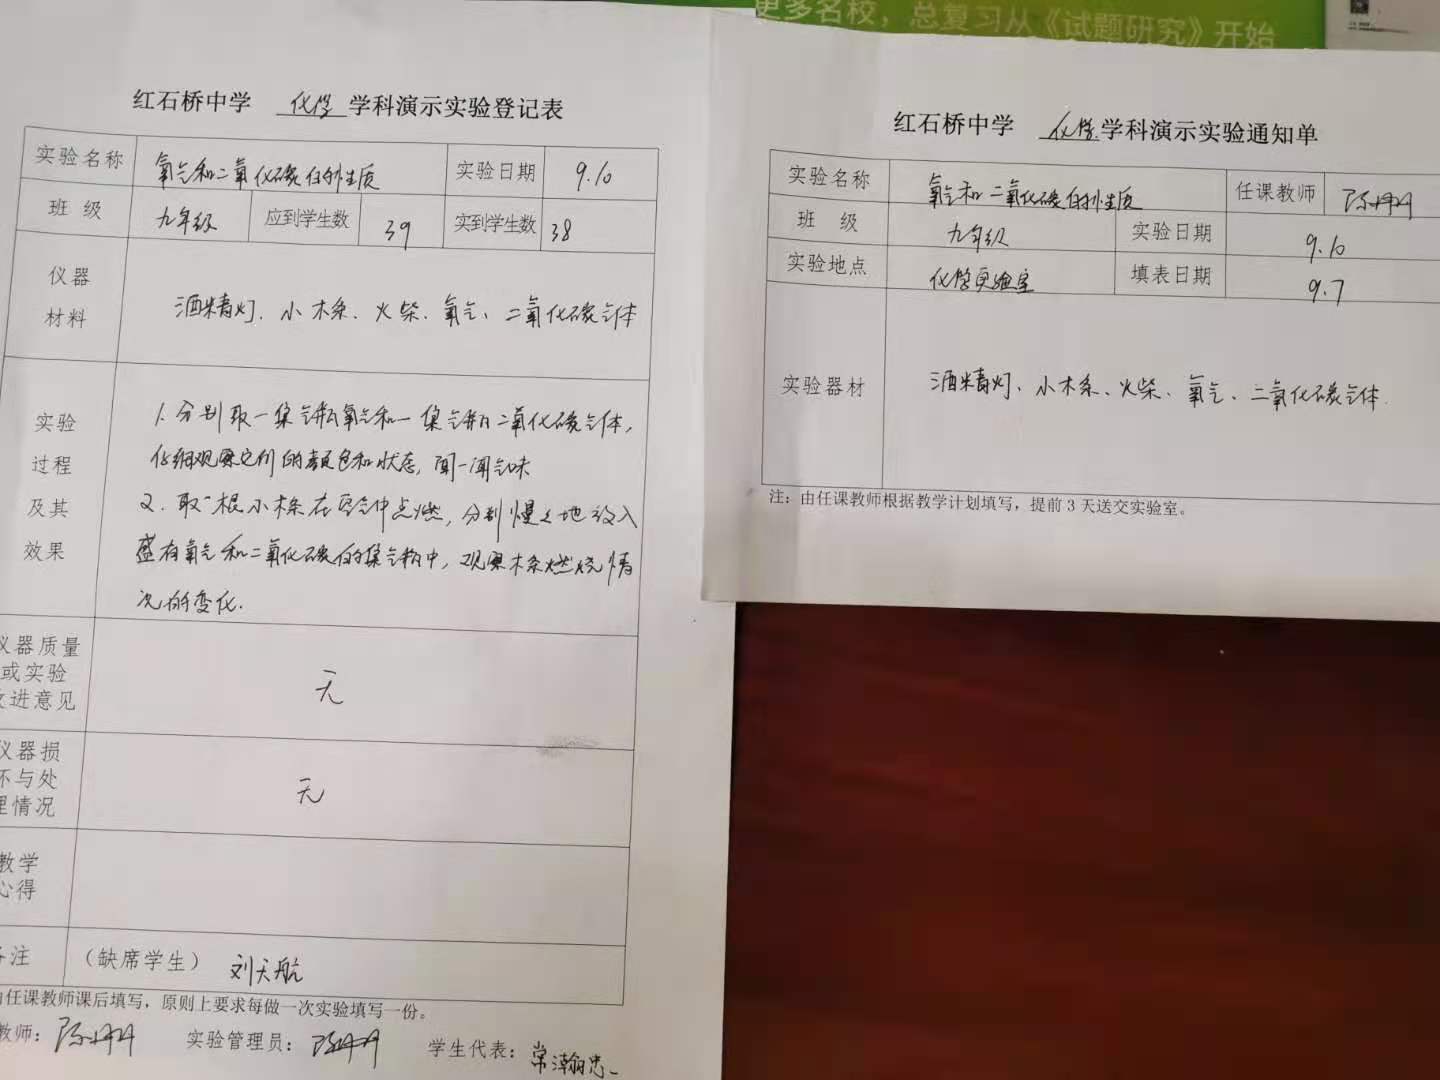 更多名校，总复习从《试题研究》开始
红石桥中学 化学 学科演示实验登记表
实验名称 氧气和二氧化碳的性质 实验日期 9.10
班 级 九年级 应到学生数 39 实到学生数 38
仪器
材料
酒精灯、小木条、火柴、氧气、二氧化碳气体
实验
过程
及其
效果
1.分别取一集气瓶氧气和一集气瓶二氧化碳气体，
仔细观察它们的颜色和状态，闻一闻气味
2.取一根小木条在空气中点燃，分别慢慢地放入
盛有氧气和二氧化碳的集气瓶中，观察木条燃烧情
况的变化.
仪器质量
或实验
改进意见
无
仪器损
坏与处
理情况
无
教学
心得
备注 （缺席学生） 刘天航
由任课教师课后填写，原则上要求每做一次实验填写一份。
教师： 陈丹丹 实验管理员： 陈丹丹 学生代表： 常瀚忠
红石桥中学 化学 学科演示实验通知单
实验名称 氧气和二氧化碳的性质 任课教师 陈丹丹
班 级 九年级 实验日期 9.10
实验地点 化学实验室 填表日期 9.7
实验器材 酒精灯、小木条、火柴、氧气、二氧化碳气体.
注：由任课教师根据教学计划填写，提前3天送交实验室。